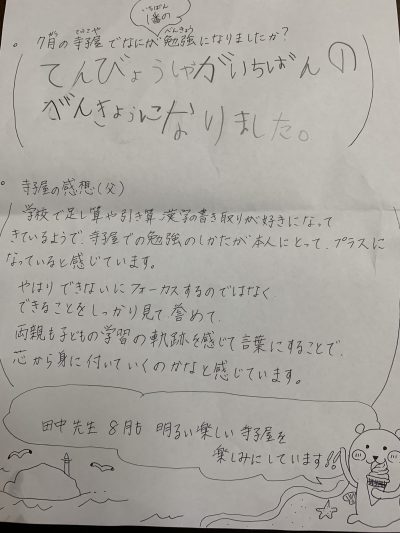 いちばん
1番の
げつ てらこや べんきょう
。7月の寺子屋でなにが勉強になりましたか?
てんびょうしゃがいちばんの
がんきょうになりました。
。寺子屋の感想(父)
学校で足し算や引き算、漢字の書き取りが好きになって
きているようで、寺子屋での勉強のしかたが本人にとって、プラスに
なっていると感じています。
やはりできないにフォーカスするのではなく、
できることをしっかり見て誉めて、
両親も子どもの学習の軌跡を感じて言葉にすることで、
芯から身に付いていくのかなと感じています。
田中先生 8月も 明るい楽しい寺子屋を
楽しみにしています!!